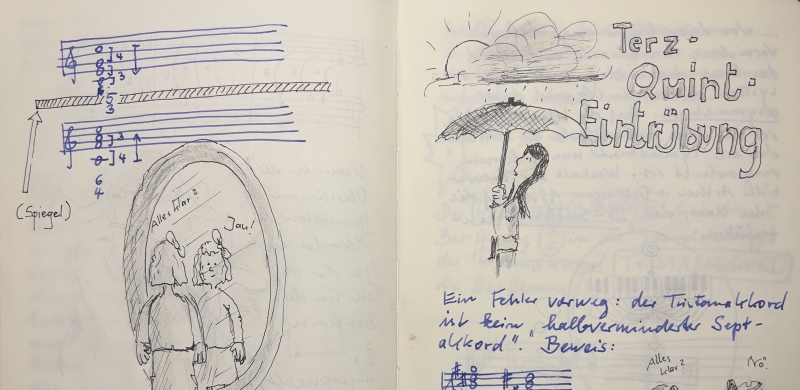 4
3
5
3
3
4
6
4
(Spiegel)
Alles klar?
Jau!
Terz-
Quint-
Eintrübung
Ein Fehler vorweg: der Tristanakkord
ist kein „halbverminderter Sept-
akkord“. Beweis:
Alles
klar?
Nö.